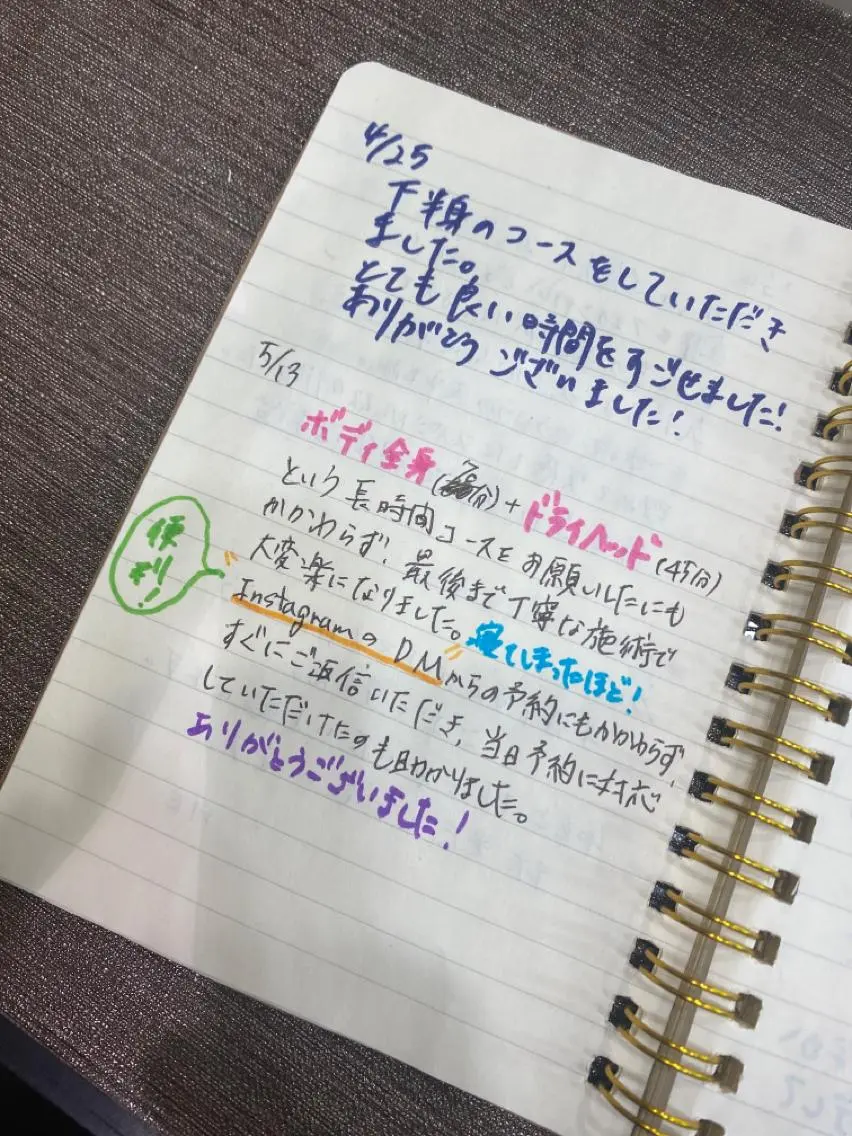 4/25
下半身のコースをしていただき
ました。
とても良い時間をすごせました!
ありがとうございました!
5/13
ボディ全身(分)+ドライヘッド(45分)
という長時間コースをお願いしたにも
かかわらず!最後まで丁寧な施術で
大変楽になりました。寝てしまったほど!
便利!
"InstagramのDM"からの予約にもかかわらず、
すぐにご返信いただき、当日予約に対応
していただけたのも助かりました。
ありがとうございました!